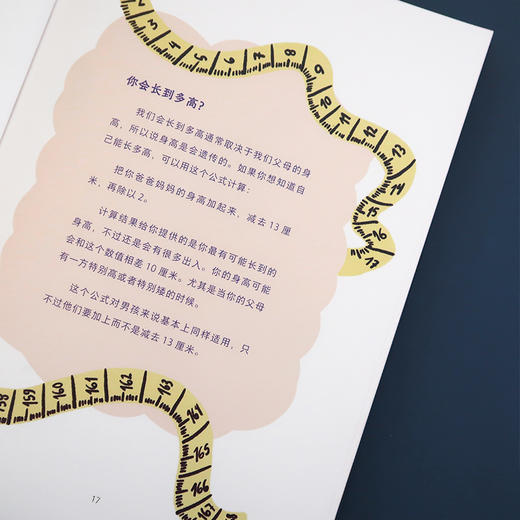 2
3
4
5
6
7
8
9
10
11
12
13
14
15
16
17
你会长到多高？
我们会长到多高通常取决于我们父母的身
高，所以说身高是会遗传的。如果你想知道自
己能长多高，可以用这个公式计算：
把你爸爸妈妈的身高加起来，减去 13 厘
米，再除以 2。
计算结果给你提供的是你最有可能长到的
身高，不过还是会有很多出入。你的身高可能
会和这个数值相差 10 厘米。尤其是当你的父母
有一方特别高或者特别矮的时候。
这个公式对男孩来说基本上同样适用，只
不过他们要加上而不是减去 13 厘米。
158
159
160
161
162
163
164
165
166
167
17